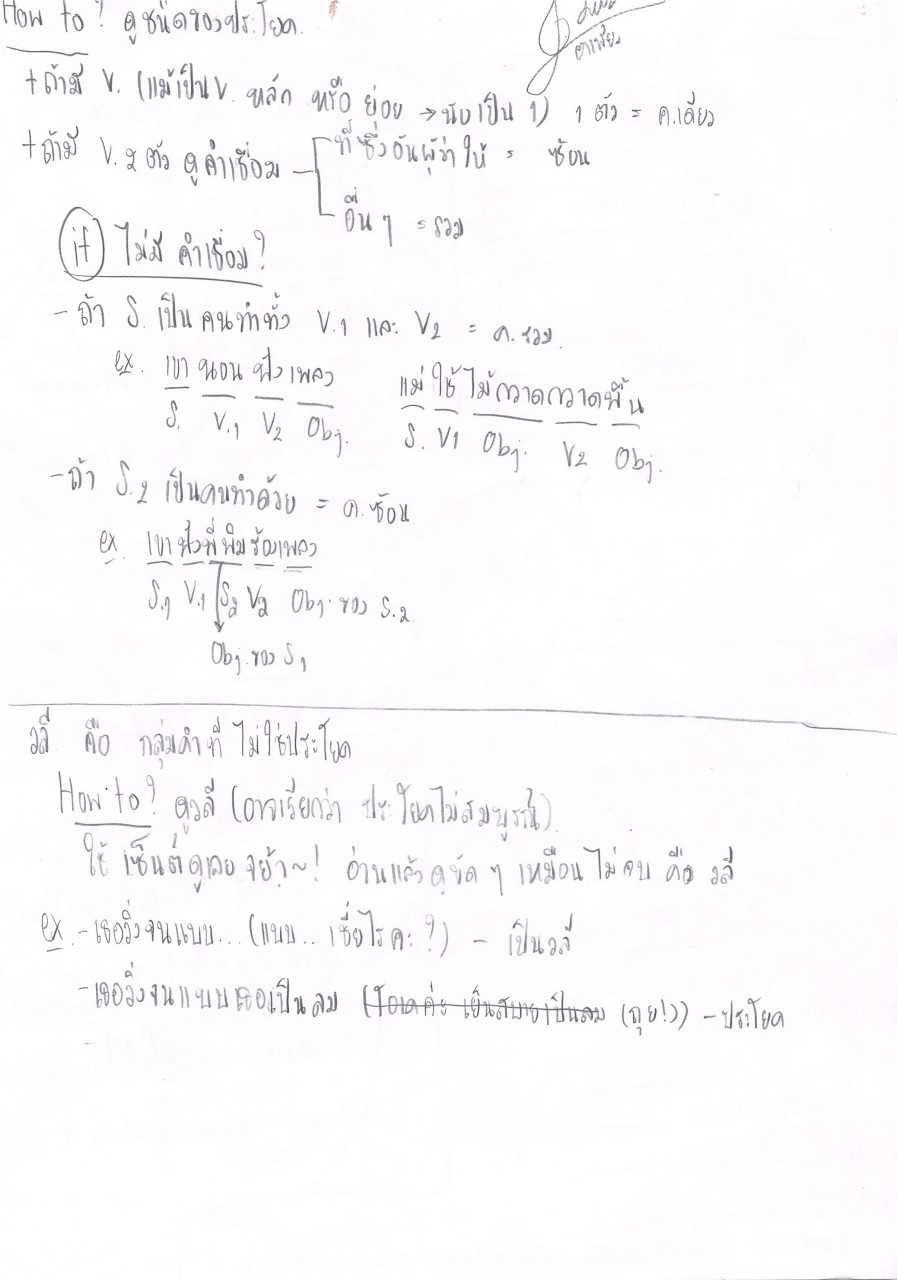 How to? ดูชนิดของประโยค
+ถ้ามี V. (แม้เป็น V. หลัก หรือ ย่อย → นับเป็น 1) 1 ตัว = ค.เดียว
+ถ้ามี V. 2 ตัว ดูคำเชื่อม
ที่ซึ่งอันผู้ว่าให้ = ซ้อน
อื่นๆ = รวม
if ไม่มี คำเชื่อม?
- ถ้า S. เป็นคนทำทั้ง V.1 และ V2 = ค.รวม.
ex. เขา นอน ฟัง เพลง แม่ ใช้ ไม้กวาดกวาดพื้น
S. V.1 V2 Obj. S. V1 Obj. V2 Obj.
- ถ้า S.2 เป็นคนทำด้วย = ค.ซ้อน
ex. เขาฟังพี่พิมร้องเพลง
S.1 V.1 S2 V2 Obj. ของ S.2
Obj. ของ S1
วลี คือ กลุ่มคำที่ ไม่ใช่ประโยค
How to? ดูวลี (อาจเรียกว่า ประโยคไม่สมบูรณ์)
ใช้ เซ็นต์ดูเลย จย้า~! อ่านแล้วดูขัด ๆ เหมือน ไม่จบ คือ วลี
ex. - เธอวิ่งจนแบบ... (แบบ... เชี่ยไรคะ?) - เป็นวลี
- เธอวิ่งจนแบบเธอเป็นลม (โอเคค่ะ เย็นสบายเป็นลม (ถุย!)) - ประโยค